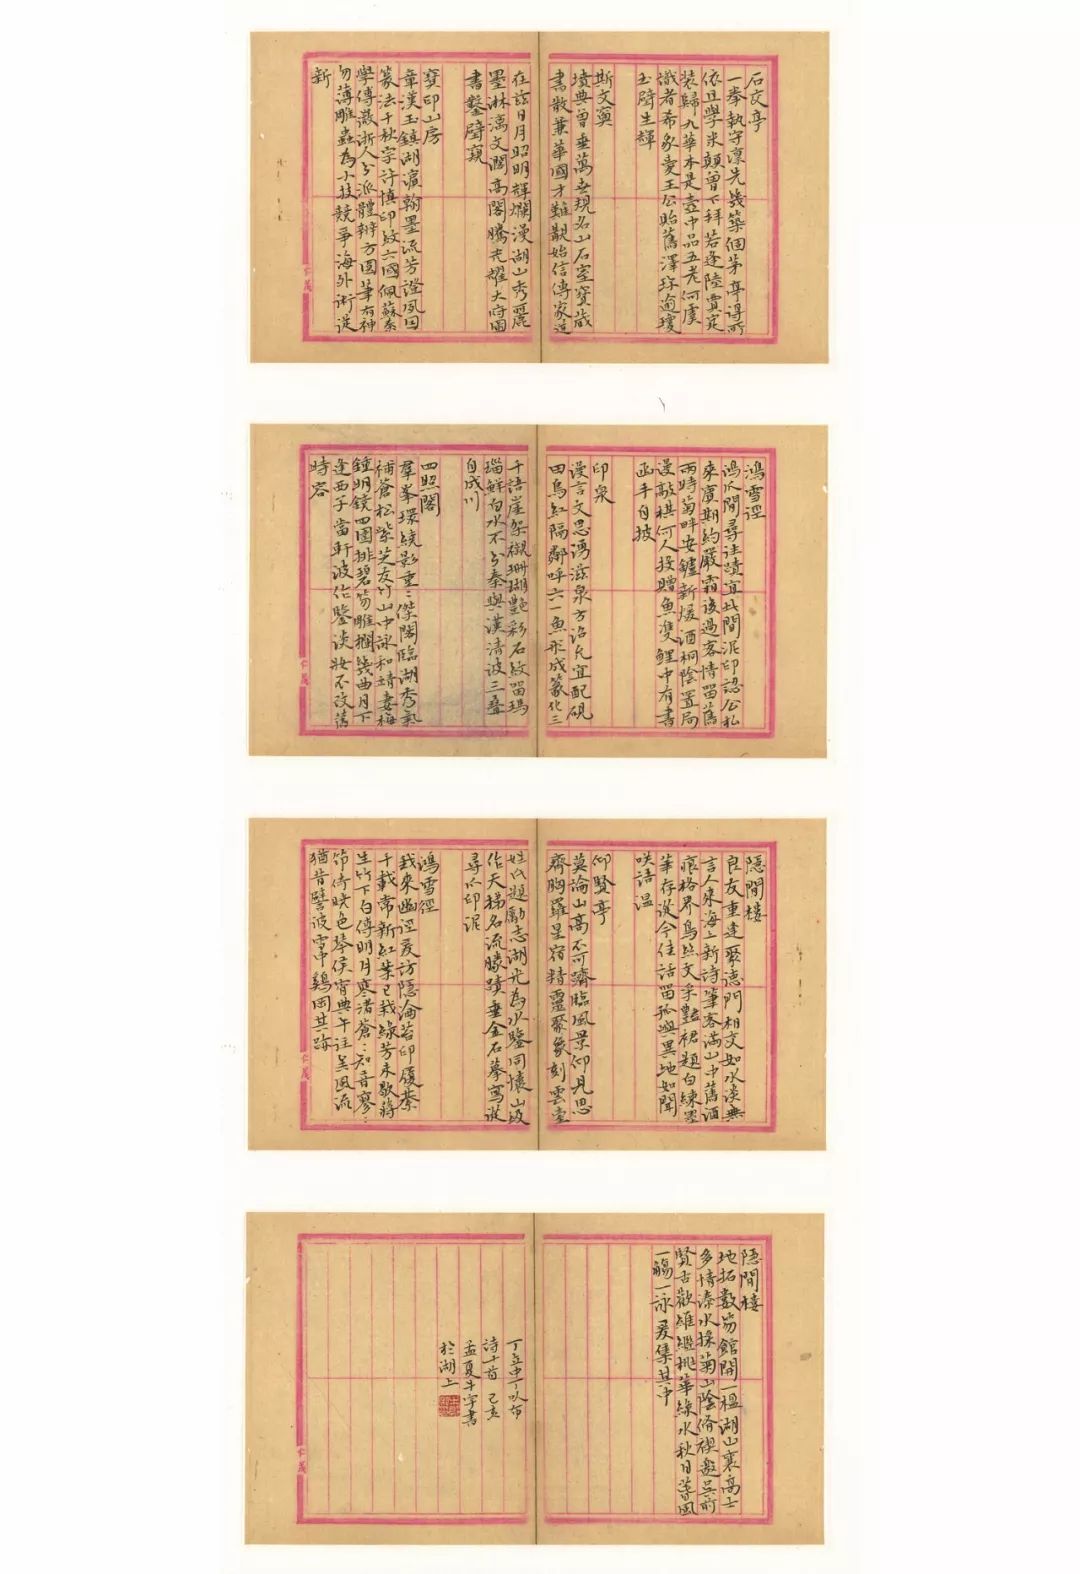 石交亭
一拳執守凛先幾築個茅亭得所
依且學米顛曾下拜若逢陸賈定
裝歸九華本是壺中品五老何虞
識者希永憂王公貽舊澤珍逾瓊
玉壁生輝
斯文奧
墳典曾垂萬世規名山石室寶藏
書散兼華國才難觀始信傳家道
在茲日月昭明輝爛漫湖山秀麗
墨淋漓文瀾高閣騰光耀大府圖
書鑿壁窺
寶印山房
章漢玉鎮湖濱翰墨流芳證夙因
篆法千秋字許慎印紋六國佩蘇秦
學傳燕浙人分派體辨方圓筆有神
勿薄雕蟲為小技競爭海外術從
新
鴻雪徑
鴻爪閒尋往蹟宜此間泥印認公私
來賓期約嚴霜後過客情留舊
雨時菊畔安罏新煖酒桐陰置局
漫敲棋何人投贈魚雙鯉中有書
函手自披
印泉
漫言文思湧滋泉方沼尤宜配硯
田鳥紅隔鄰呼六一魚形成篆化三
千語崖架襯珊瑚艷彩石紋留瑪
瑙鮮白水不分秦與漢清波三疊
自成川
四照閣
羣峯環繞影重〻傑閣臨湖秀氣
補蒼松紫芝友竹山中詠和靖妻梅
鍾明鏡四圍排碧笏雕攔幾曲月下
逢西子當軒波作鑒淡妝不改舊
時容
隱閒樓
良友重逢聚德門相交如水淡無
言人來海上新詩筆客滿山中舊酒
痕格界烏絲文采豔裙題白練墨
華存從今佳話留孤嶼異地如聞
咲語溫
仰賢亭
莫論山高不可躋臨風景仰見思
齊胸羅星宿精靈聚象刻雲臺
姓氏題勵志湖光為水鑒同懷山址
作天梯名流勝蹟垂金石摹寫從
尋爪印泥
鴻雪徑
我來幽徑爰訪隱淪苔印履綦
千載常新紅葉已栽綠芳未歇蔣
生竹下白傅明月寒渚蒼〻知音寥〻
筇倚晚色琴侯宵典午往矣風流
猶昔譬彼雪中鷄同其跡
隱閒樓
地拓數笏館開一楹湖山襄高士
多情漆水採菊山陰脩禊邀吳前
賢古歡維繼桃華綠水秋日蕚風
一觴一詠爰集其中
丁立中丁以布
詩十首 己亥
孟夏牛字書
於湖上